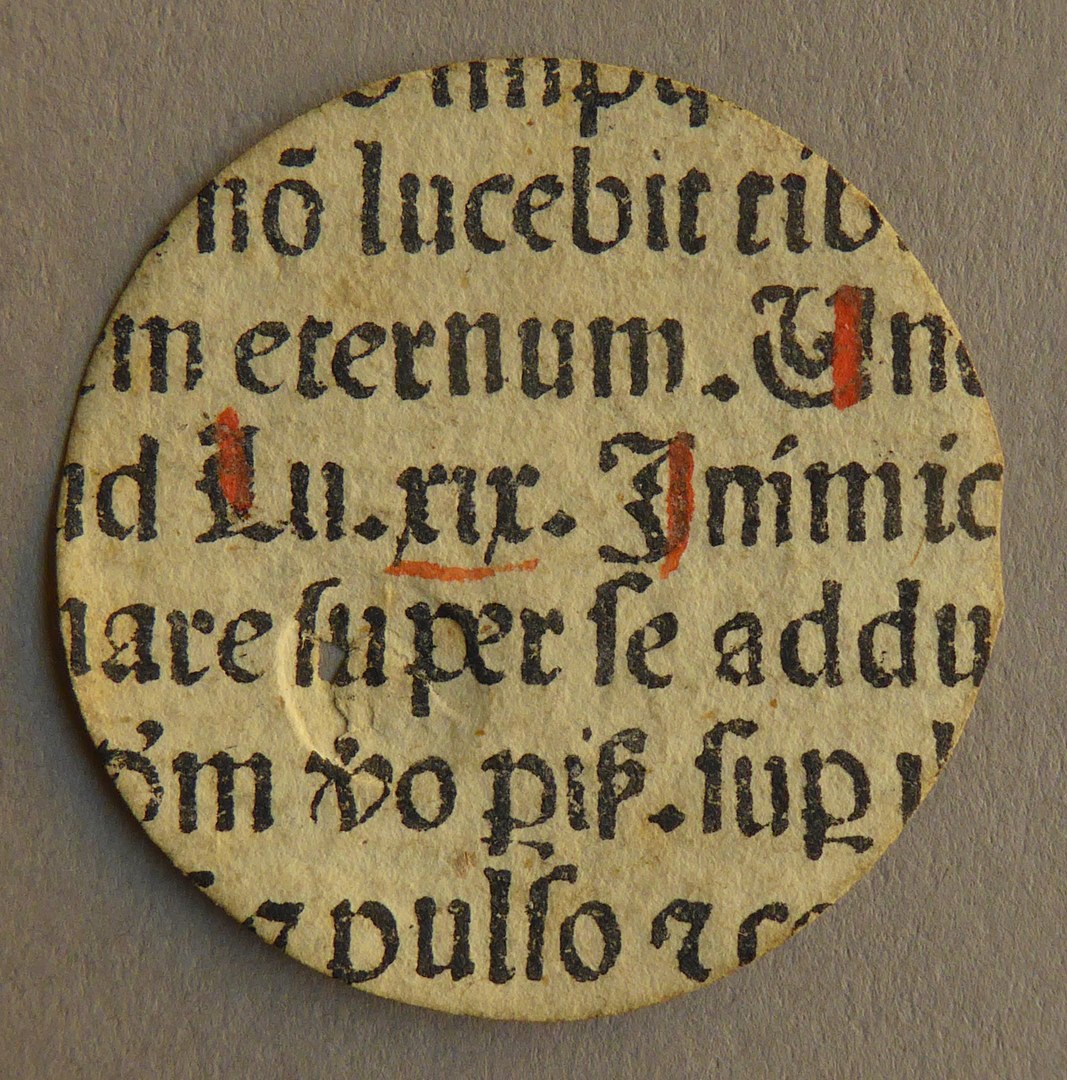 nō lucebit tib
m eternum. Un
ud Lu.xix. Inimic
nare super se addu
m vo pisſ. sup
⁊ pulso ⁊ c